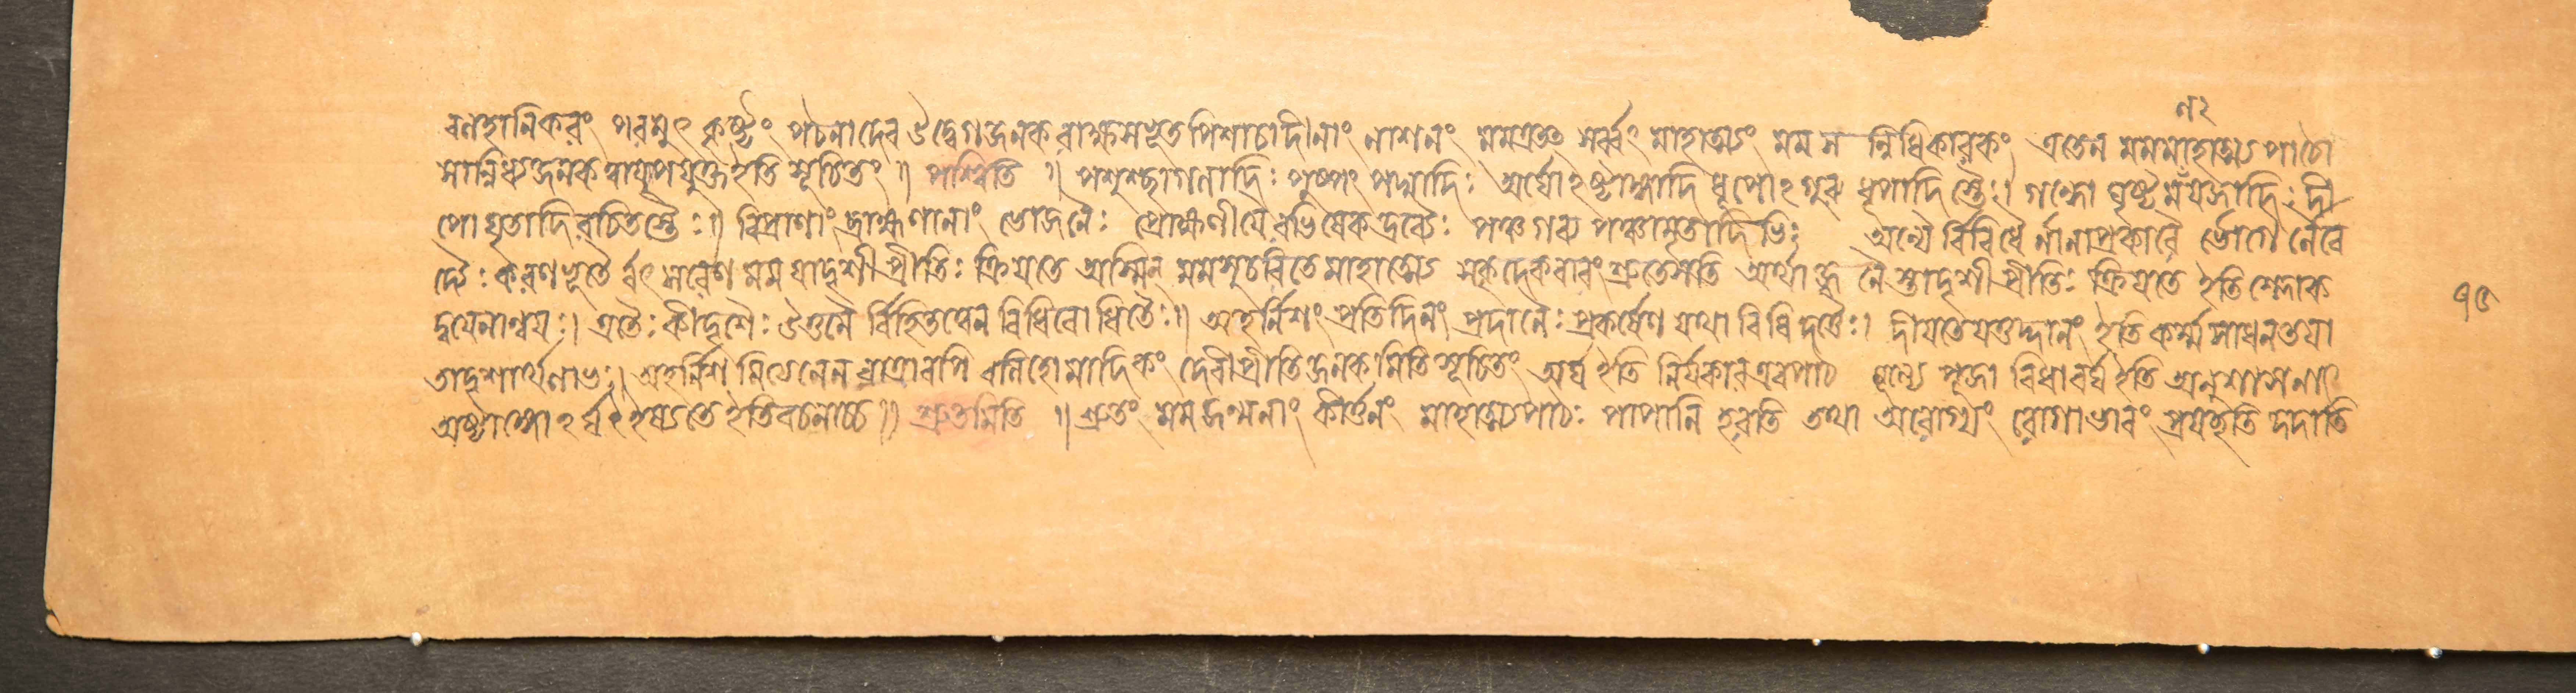 ণং
বলহানিকরং পরমুৎকৃষ্টং পঠনাদেব উদ্বেগজনক রাক্ষসভূত পিশাচাদীনাং নাশনং মমৈতত্ সর্ব্বং মাহাত্ম্যং মম সন্নিধিকারকং এতেন মমমাহাত্ম্য পাঠো
সান্নিধ্যজনকত্বাদ্যুপযুক্ত ইতি সূচিতং ॥ পশ্বিতি ॥ পশুশ্ছাগলাদিঃ পুষ্পং পদ্মাদিঃ অর্ঘোঽষ্টাঙ্গাদি ধূপোঽগুরু ধূপাদি স্তৈঃ। গন্ধো ঘৃষ্ট মলয়জাদিঃ দী
পো ঘৃতাদি রচিতস্তৈঃ॥ বিপ্রাণাং ব্রাহ্মণানাং ভোজনৈঃ প্রোক্ষণীয়ৈ রভিষেকদ্রব্যৈঃ পঞ্চগব্য পঞ্চামৃতাদিভিঃ অন্যৈ র্বিবিধৈ র্নানাপ্রকারৈ র্ভোগৈ র্নৈবে
দ্যৈঃ করণভূতৈ র্বৎসরেণ মম যাদৃশী প্রীতিঃ ক্রিয়তে অস্মিন্ মমসুচরিতে মাহাত্ম্যে সকৃদেকবারং শ্রুতেসতি অর্থা তাদৃশী প্রীতিঃ ক্রিয়তে ইতি শ্লোক
দ্বয়েনান্বয়ঃ। এতৈঃ কীদৃশৈঃ উত্তমৈ র্বিহিতত্বেন বিধিবোধিতৈঃ॥ অহর্নিশং প্রতিদিনং প্রদানৈঃ প্রকর্ষেণ যথা বিধি দত্তৈঃ। দীয়তে যত্তদ্দানং ইতি কর্ম্মসাধনতয়া
তাদৃশার্থলাভঃ। অহর্নিশ মিত্যনেন রাত্রাবপি বলিহোমাদিকং দেবীপ্রীতিজনকমিতি সূচিতং অর্ঘ ইতি নির্যকার এবপাঠ মূল্যে পূজা বিধাবর্ঘ ইতি অনুশাসনাৎ
অষ্টাঙ্গোঽর্ঘ ইষ্যতে ইতিবচনাচ্চ ॥ শ্রুতমিতি ॥ শ্রুতং মম জন্মনাং কীর্ত্তনং মাহাত্ম্যপাঠঃ পাপানি হরতি তথা আরোগ্যং রোগাভাবং প্রযচ্ছতি দদাতি
৭৫